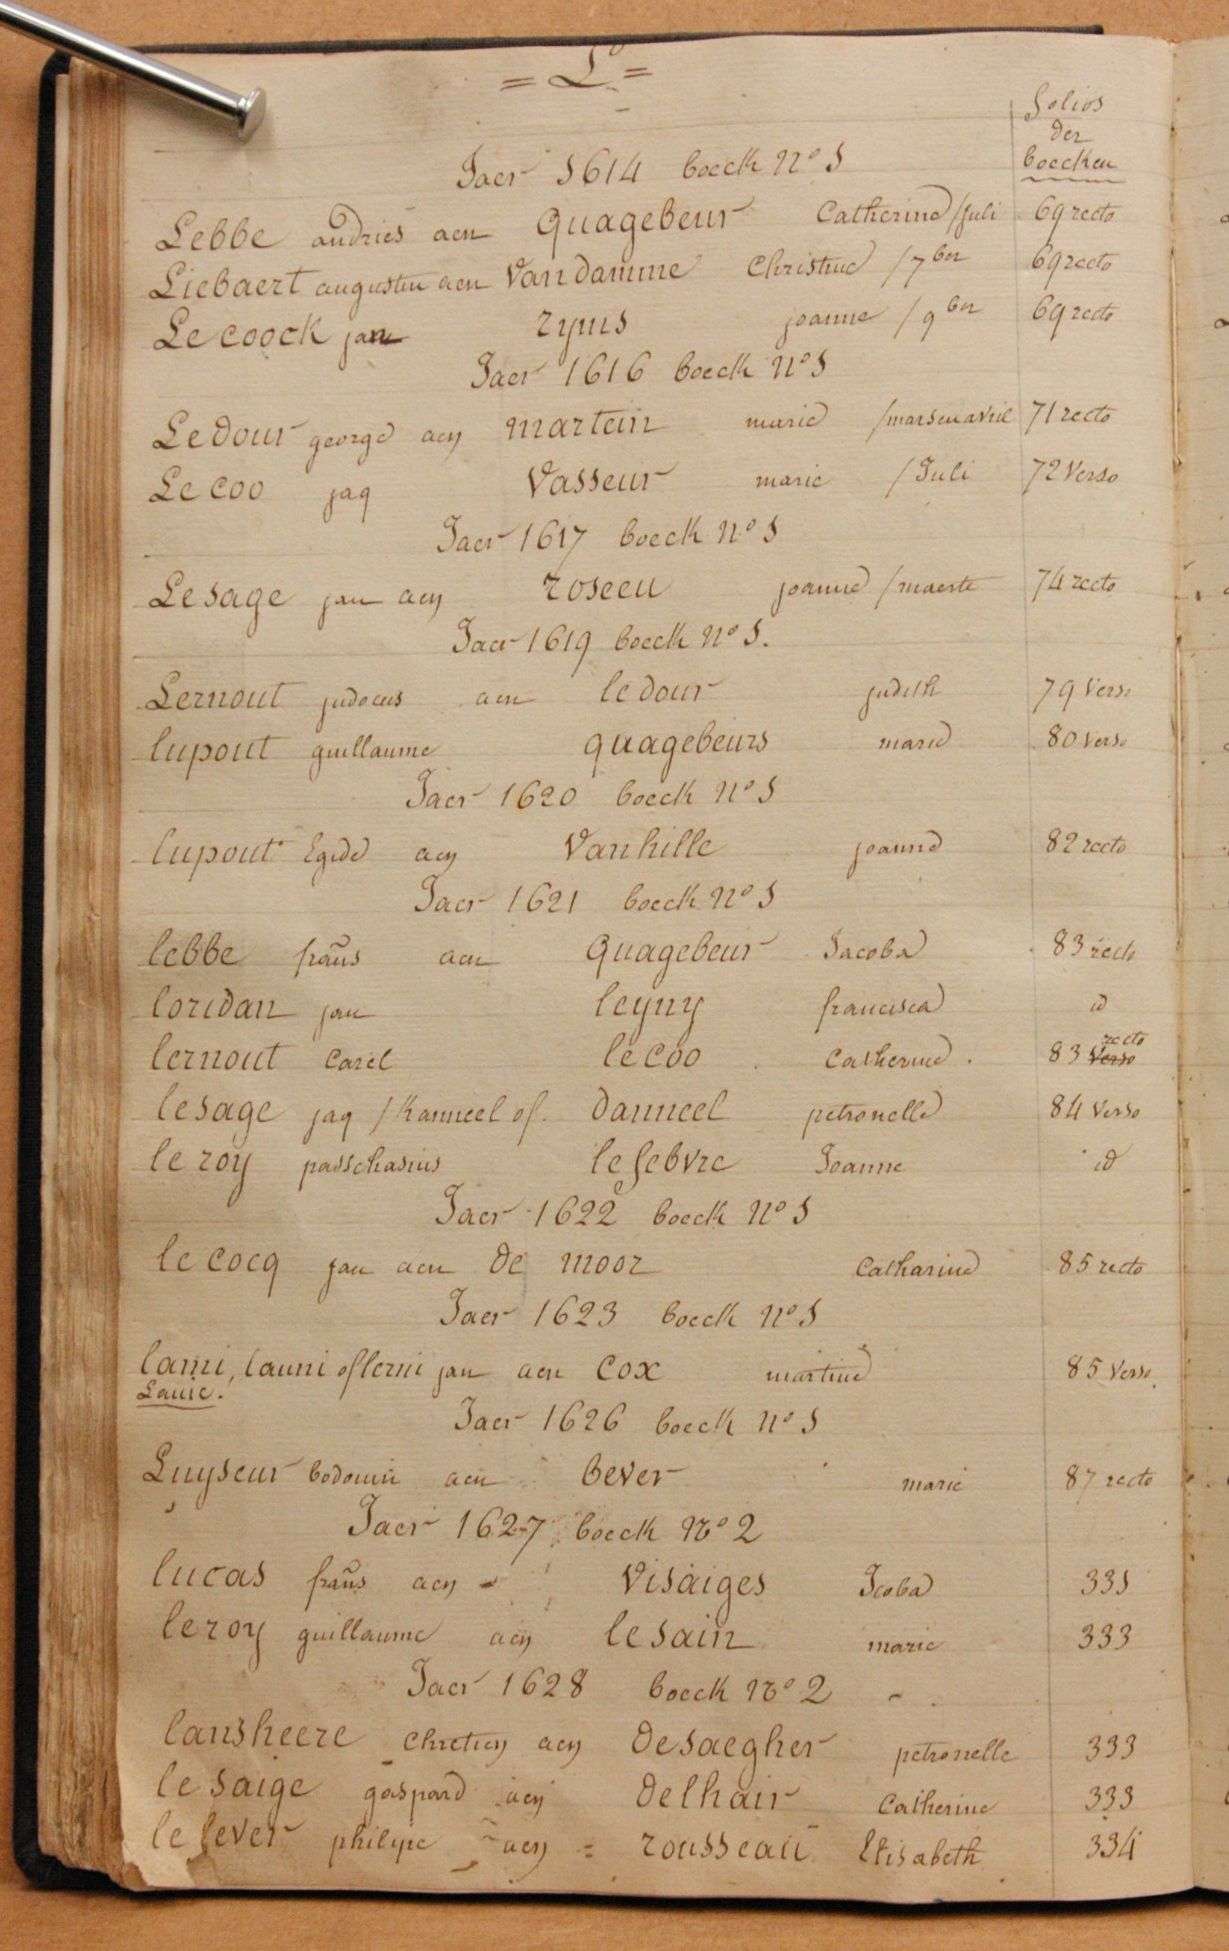 = L =
folios
der
boecken
Jaer 1614 boeck Nº 1
Lebbe andries aen Quagebeur Catherine / Juli 69 recto
Liebaert augustin aen Vandamme Christine / 7ber 69 recto
Le coock jan ryms joanne / 9ber 69 recto
Jaer 1616 boeck Nº 1
Ledour george aen martein marie / mars en avril 71 recto
Le coo jaq Vasseur marie / Juli 72 Verso
Jaer 1617 boeck Nº 1
Lesage jan aen roseeu joanne / maerte 74 recto
Jaer 1619 boeck Nº 1.
Lernout judocus aen ledour judith 79 Verso
lupout guillaume quagebeurs marie 80 verso
Jaer 1620 boeck Nº 1
lupout Egide aen Vanhille joanne 82 recto
Jaer 1621 boeck Nº 1
lebbe frañs aen Quagebeur Jacoba 83 recto
loridan jan leyny francisca id
lernout Carel lecoo Catherine . 83 Verso recto
lesage jaq / Kanneel of. Danneel petronelle 84 Verso
le roy passchasius lefebvre Joanne id
Jaer 1622 boeck Nº 1
le cocq jan aen De moor Catharine 85 recto
Jaer 1623 boeck Nº 1
lami, launi of lerni jan aen Cox martine 85 Verso
Lauie.
Jaer 1626 boeck Nº 1
Luyseur bodouin aen bever marie 87 recto
Jaer 1627 boeck Nº 2
lucas frañs aen Visaiges Jcoba 331
leroy guillaume aen lesain marie 333
Jaer 1628 boeck Nº 2
lansheere Chretien aen Desaegher petronelle 333
le saige gaspard aen Delhair Catherine 333
le fever philipe aen = rousseau Elisabeth 334